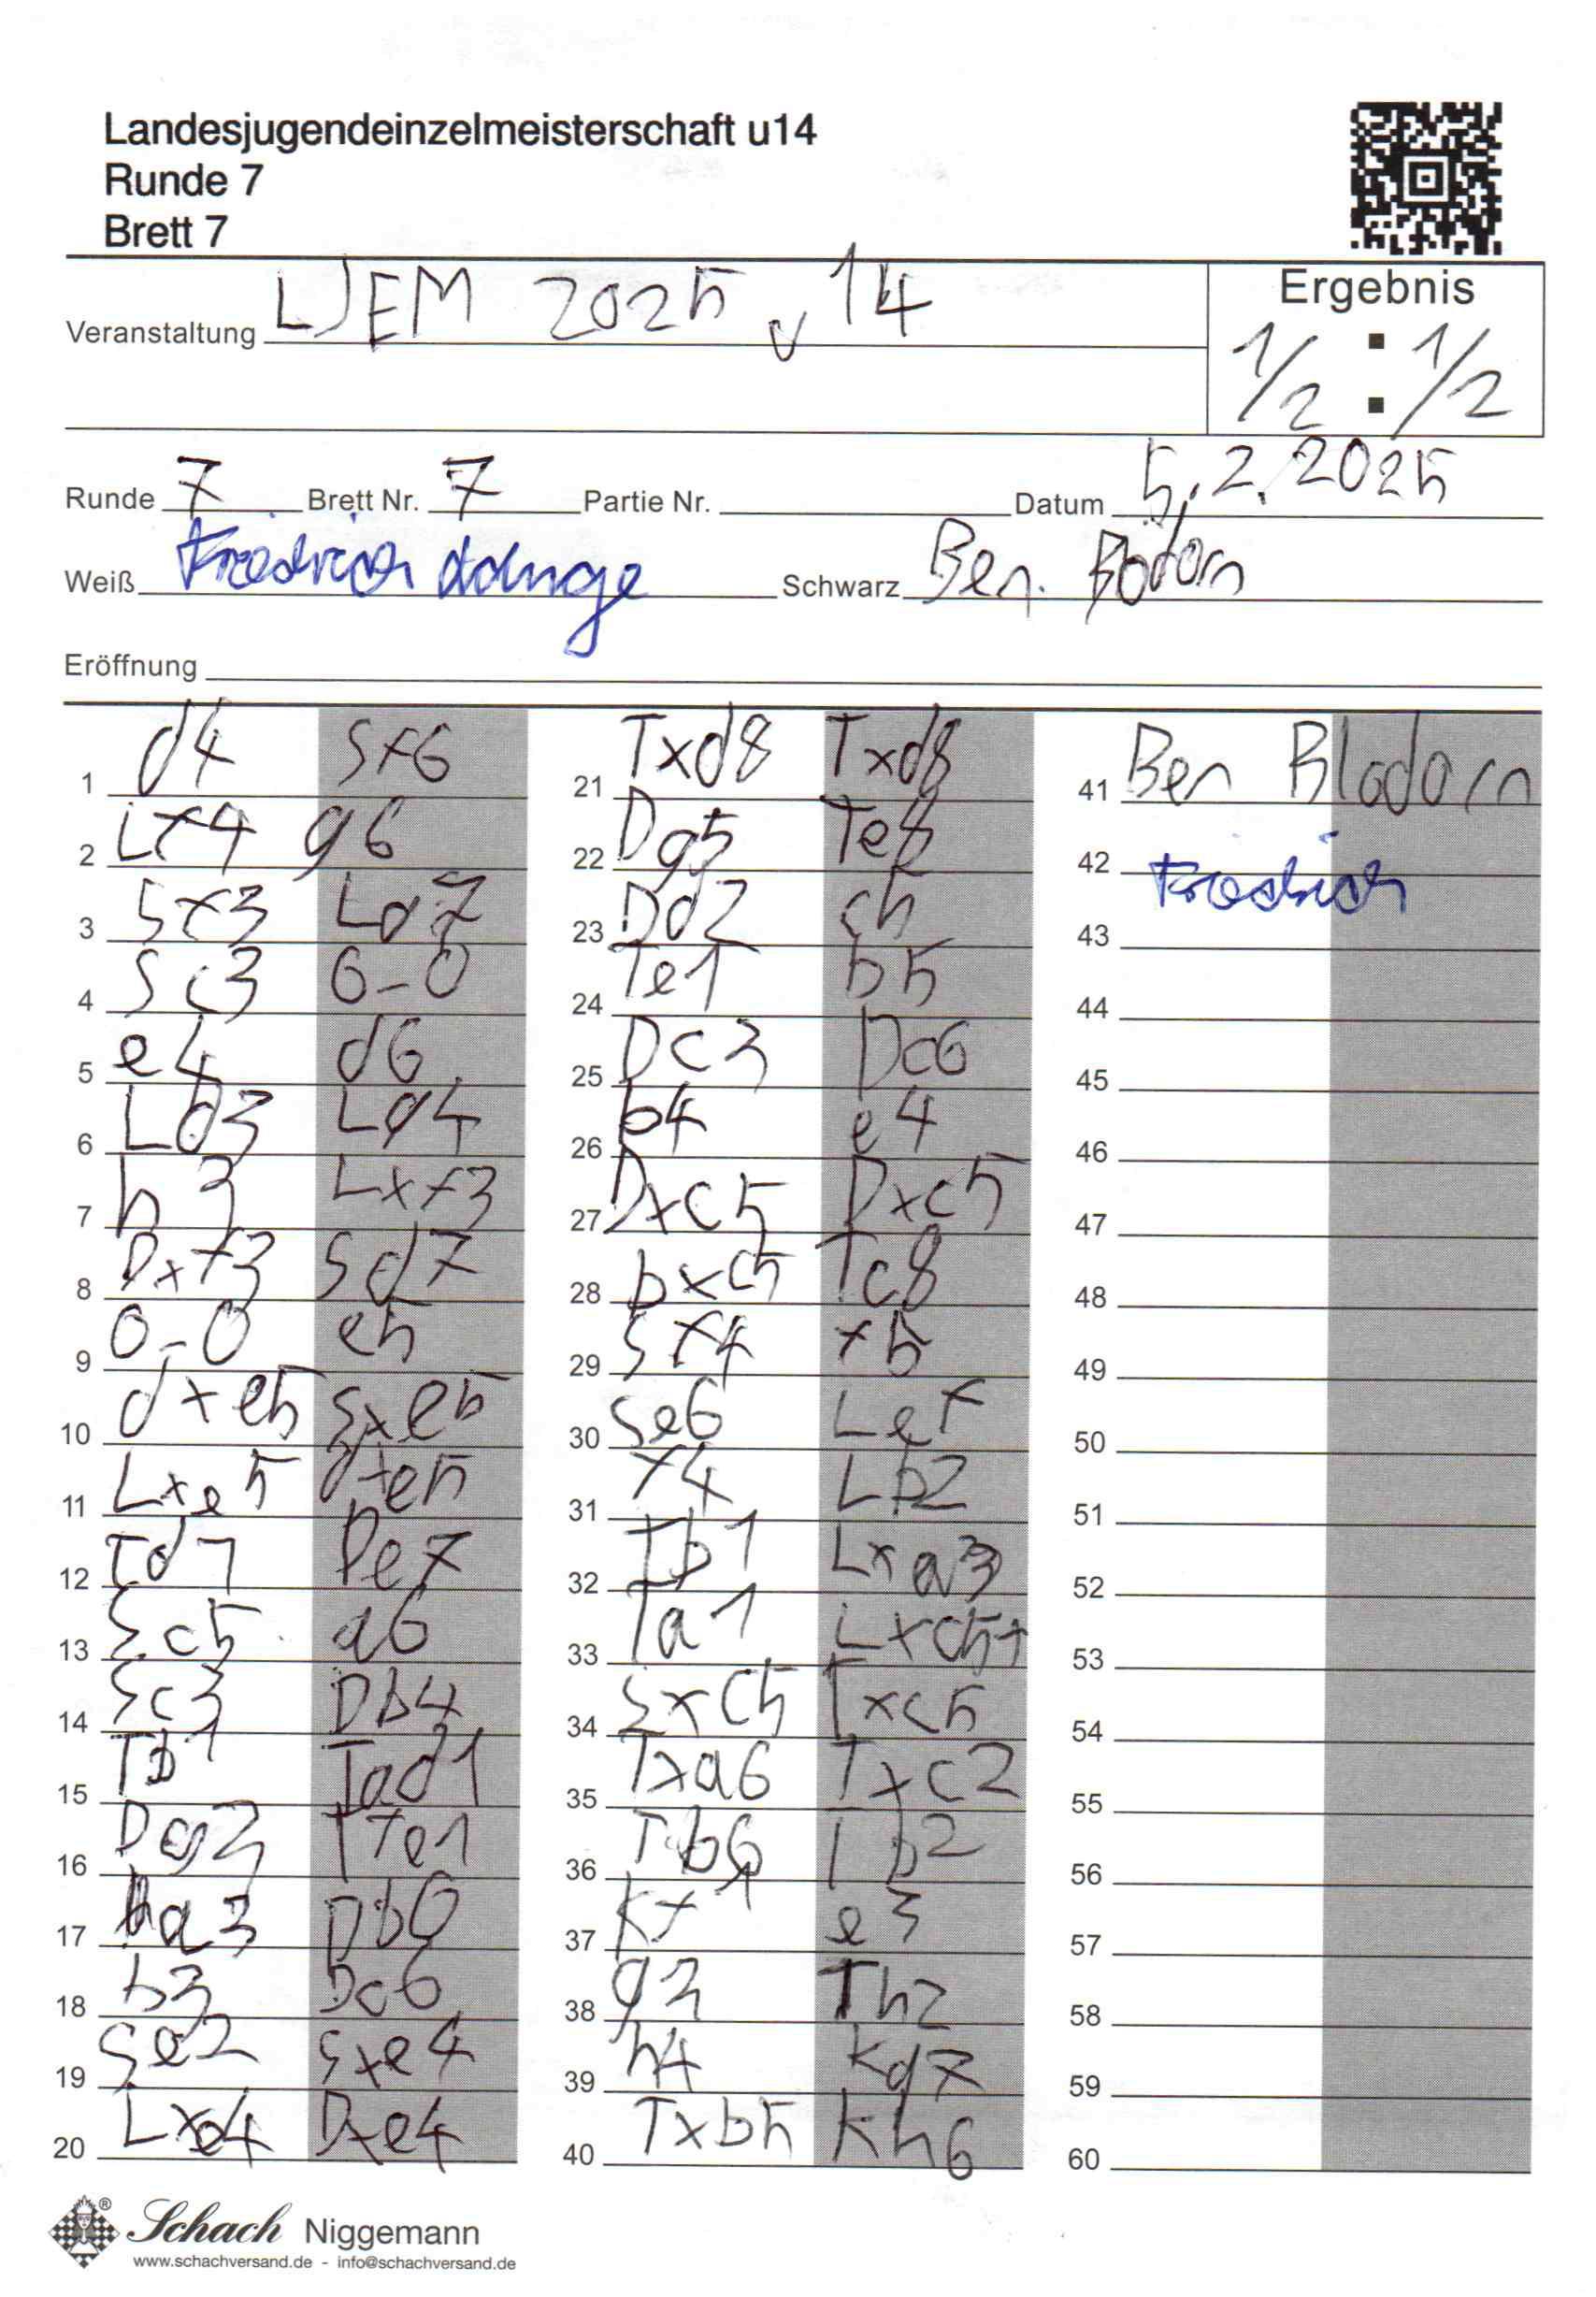 Landesjugendeinzelmeisterschaft u14
Runde 7
Brett 7
Veranstaltung LJEM 2025 u14
Ergebnis
1/2 : 1/2
Runde 7 Brett Nr. 7 Partie Nr. Datum 5.2.2025
Weiß Friedrich Schwarz Ben.
Eröffnung
1 d4 Sf6
2 Lf4 g6
3 Sf3 Lg7
4 Sc3 0-0
5 e4 d6
6 Ld3 Lg4
7 h3 Lxf3
8 Dxf3 Sd7
9 0-0 e5
10 dxe5 Sxe5
11 Lxe5 dxe5
12 Td1 De7
13 Sc5 a6
14 Sc3 Db4
15 Tb1 Tad1
16 Dg3 Tfe1
17 a3 Db6
18 b3 Dc6
19 Se2 Sxe4
20 Lxe4 Dxe4
21 Txd8 Txd8
22 Dg5 Te8
23 Dd2 c5
24 Te1 b5
25 Dc3 Dc6
26 b4 e4
27 Dxc5 Dxc5
28 bxc5 Tc8
29 Sf4 f5
30 Se6 Lef
31 f4 Lb2
32 Tb1 Lxa3
33 Ta1 Lxc5+
34 Sxc5 Txc5
35 Txa6 Txc2
36 Tb6 Tb2
37 Kf1 e3
38 g3 Th2
39 h4 Kg7
40 Txb5 Kh6
41 Ben Blodorn
42 Friedrich
43
44
45
46
47
48
49
50
51
52
53
54
55
56
57
58
59
60
Schach Niggemann
www.schachversand.de - info@schachversand.de